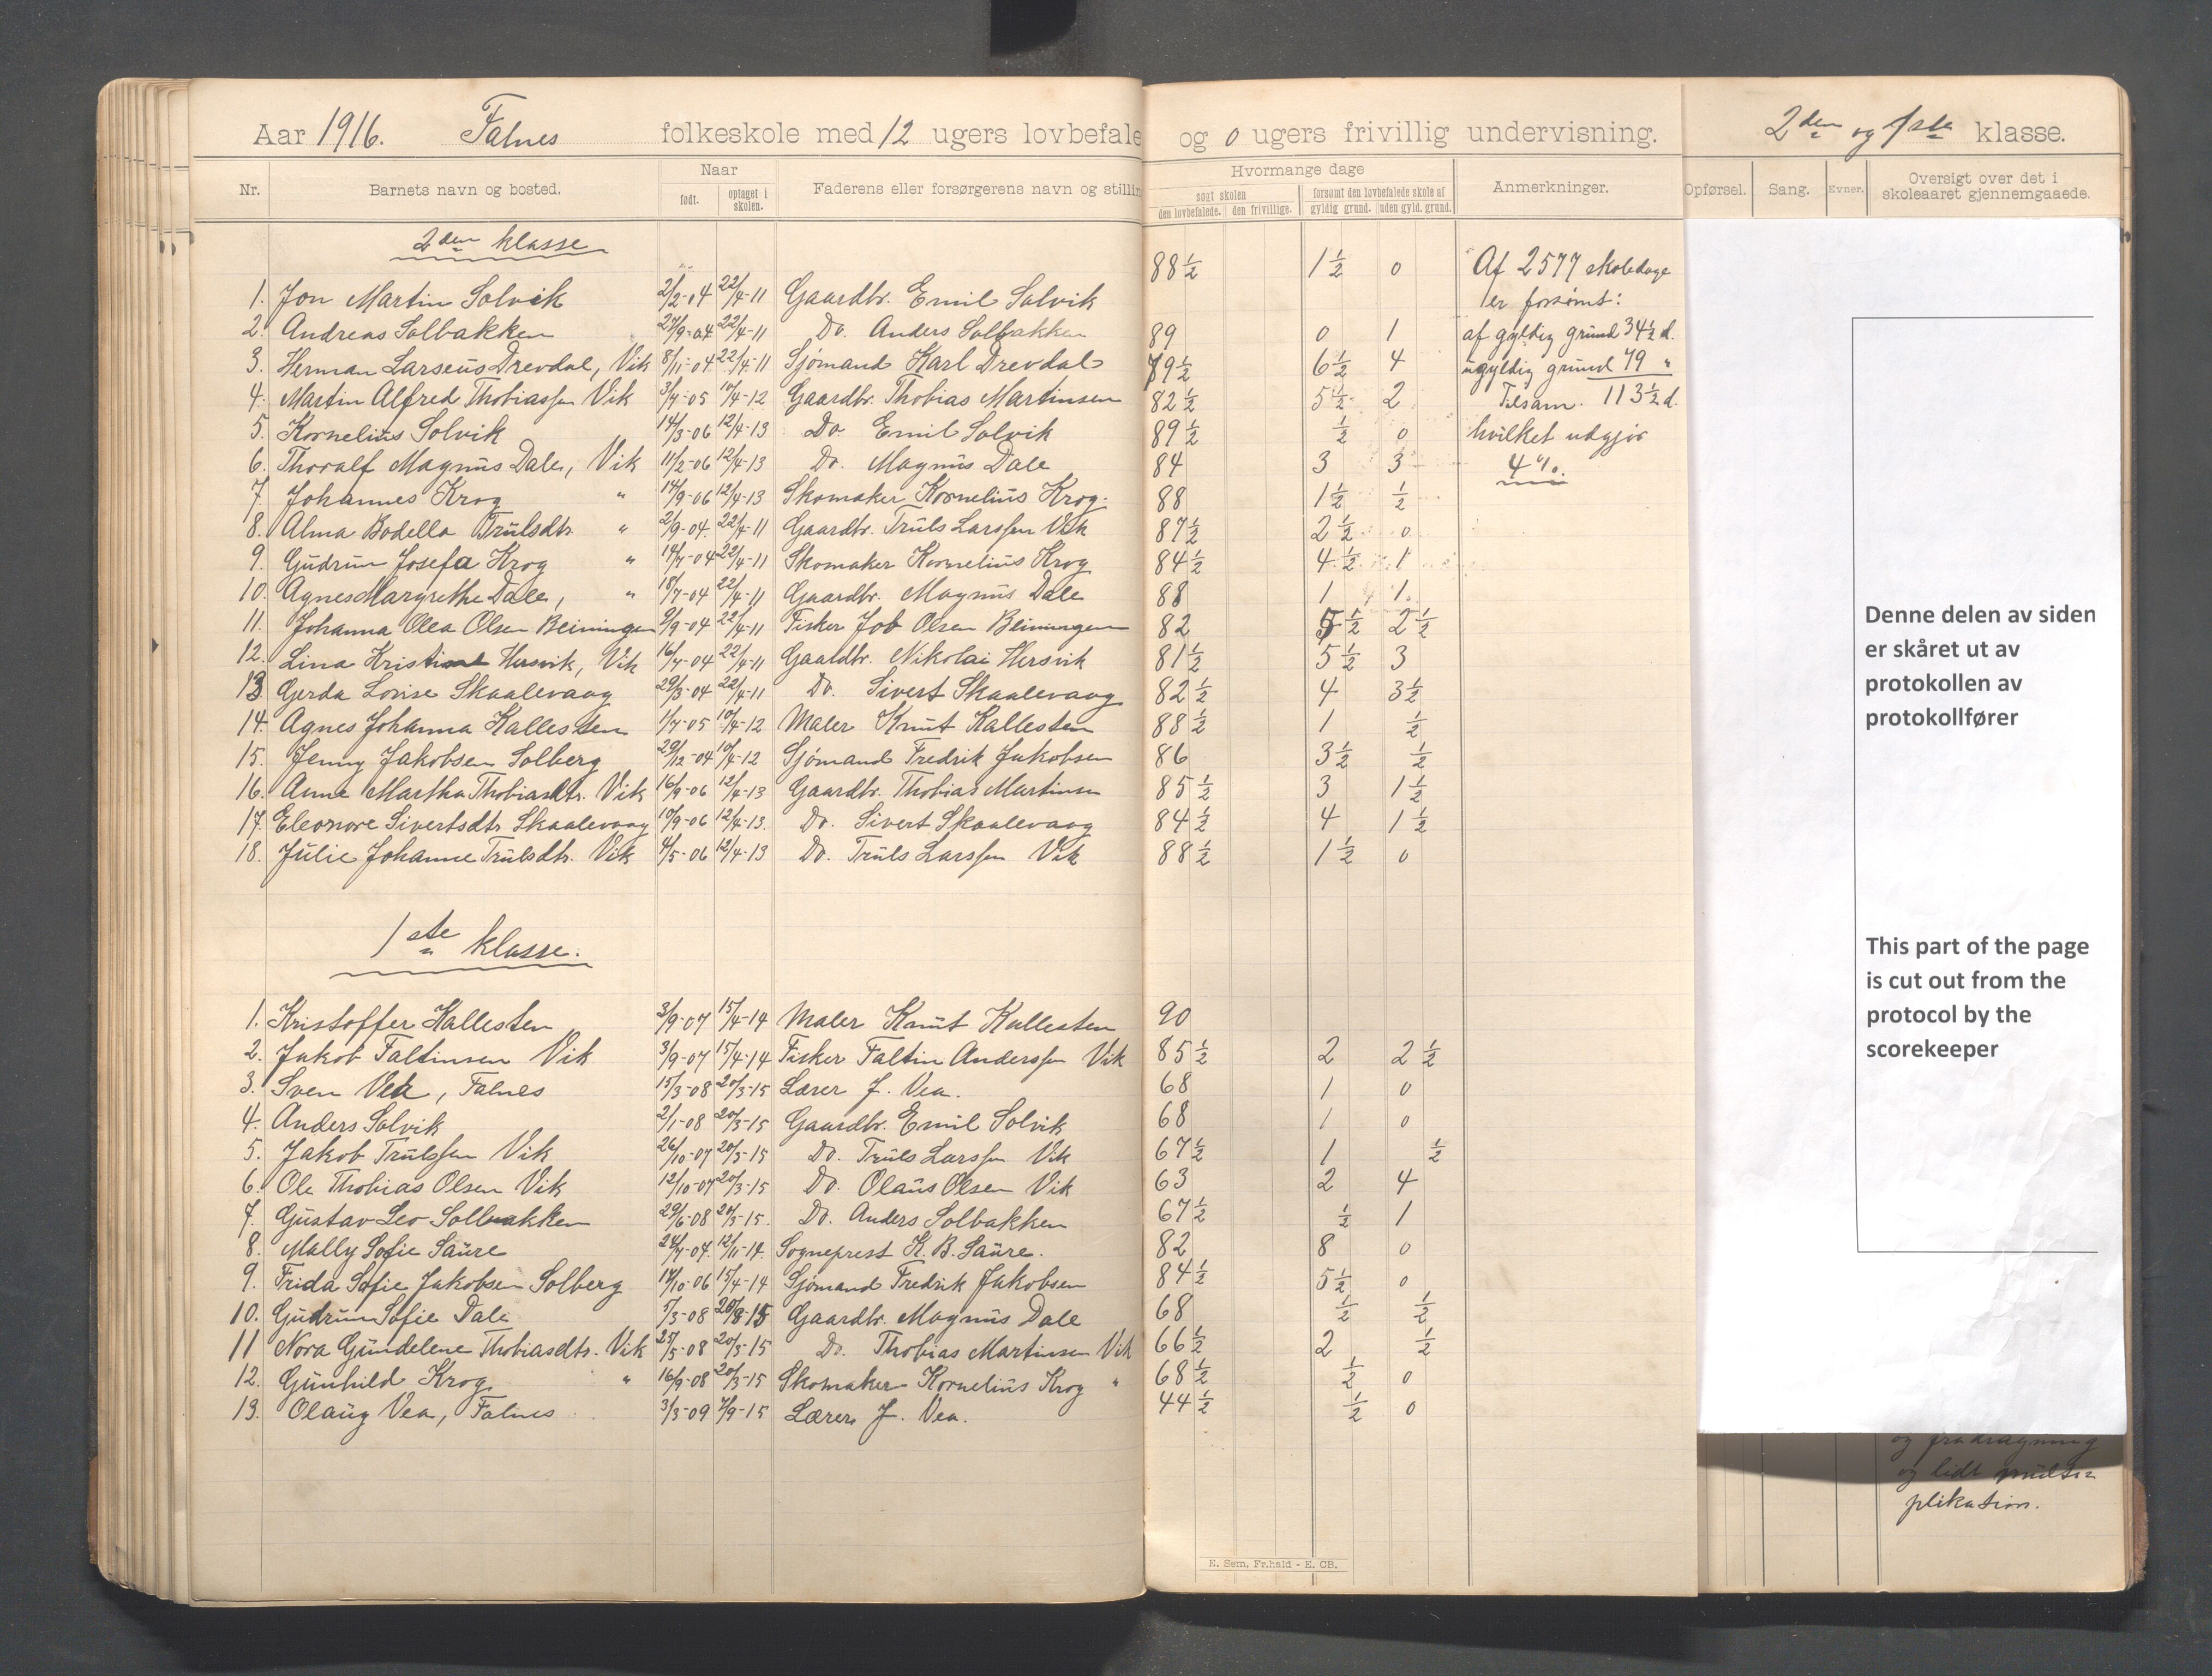 Aar 1916. Falnes folkeskole med 12 ugers lovbefale og 0 ugers frivillig undervisning. 2den og 1ste klasse.
Nr. Barnets navn og bosted. Naar født. optaget i skolen. Faderens eller forsørgerens navn og stillin Hvormange dage søgt skolen den lovbefalede. den frivillige. forsømt den lovbefalede skole af gyldig grund. uden gyld. grund. Anmerkninger. Opførsel. Sang. Evner. Oversigt over det i skoleaaret gjennemgaaede.
2den klasse
1. Jon Martin Solvik 2/2-04 22/4-11 Gaardbr. Emil Solvik 88 1/2 1 1/2 0 Af 2577 skoledage
er forsømt:
2. Andreas Solbakken 27/9-04 22/4-11 Do. Anders Solbakken 89 0 1 af gyldig grund 34 1/2 d.
3. Herman Larseus Drevdal, Vik 8/11-04 22/4-11 Sjømand Karl Drevdal 79 1/2 6 1/2 4 ugyldig grund 79 "
4. Martin Alfred Thobiassen Vik 3/7-05 10/4-12 Gaardbr. Thobias Martinsen 82 1/2 5 1/2 2 Tilsam. 113 1/2 d.
5. Kornelius Solvik 14/3-06 12/4-13 Do. Emil Solvik 89 1/2 1/2 0 hvilket udgjør
6. Thoralf Magnus Dale, Vik 11/2-06 12/4-13 Do. Magnus Dale 84 3 3 4 %.
7. Johannes Krog " 14/9-06 12/4-13 Skomaker Kornelius Krog. 88 1 1/2 1/2
8. Alma Bodella Trulsdtr. " 2/9-04. 22/4-11 Gaardbr. Truls Larssen Vik 87 1/2 2 1/2 0
9. Gudrun Josefa Krog " 14/7-04 22/4-11 Skomaker Kornelius Krog 84 1/2 4 1/2 1
10. Agnes Margrethe Dale, " 18/7-04 22/4-11 Gaardbr. Magnus Dale 88 1 1.
11. Johanna Olea Olsen Beiningen 9/9-04 22/4-11 Fisker Job Olsen Beiningen 82 5 1/2 2 1/2
12. Lina Kristine Hersvik, Vik 16/7-04 22/4-11 Gaardbr. Nikolai Hersvik 81 1/2 5 1/2 3
13 Gerda Lovise Skaalevaag 29/3-04 22/4-11 Do. Sivert Skaalevaag 82 1/2 4 3 1/2
14. Agnes Johanna Kallesten 1/7-05 10/4-12 Maler Knut Kallesten 88 1/2 1 1/2
15. Jenny Jakobsen Solberg 29/12-04 10/4-12 Sjømand Fredrik Jakobsen 86 3 1/2 1/2
16. Anna Martha Thobiasdtr. Vik 16/9-06 12/4-13 Gaardbr. Thobias Martinsen 85 1/2 3 1 1/2
17. Eleonore Sivertsdtr. Skaalevaag 10/9-06 12/4-13. Do. Sivert Skaalevaag 84 1/2 4 1 1/2
18. Julie Johanne Trulsdtr. Vik 4/5-06 12/4-13 Do. Truls Larssen Vik 88 1/2 1 1/2 0
1ste klasse.
1. Kristoffer Kallesten 3/9-07 15/4-14 Maler Knut Kallesten 90
2. Jakob Faltinsen Vik 3/9-07 15/4-14 Fisker Faltin Anderssen Vik 85 1/2 2 2 1/2
3. Sven Vea, Falnes 15/3-08 20/3-15 Lærer J. Vea. 68 1 0
4. Anders Solvik 2/1-08 20/3-15 Gaardbr. Emil Solvik 68 1 0
5. Jakob Trulssen Vik 26/10-07 20/3-15 Do. Truls Larssen Vik 67 1/2 1 1/2
6. Ole Thobias Olsen Vik 12/10-07 20/3-15 Do. Olaus Olsen Vik 63 2 4
7. Gustav Leo Solbakken 29/6-08 20/3-15. Do. Anders Solbakken 67 1/2 1/2 1
8. Mally Sofie Saure 24/7-07. 12/11-14. Sogneprest K. B. Saure. 82 8 0
9. Frida Sofie Jakobsen Solberg 14/10-06 15/4-14 Sjømand Fredrik Jakobsen 84 1/2 5 1/2 0
10. Gudrun Sofie Dale 5/3-08 20/3-15 Gaardbr. Magnus Dale 68 1/2 1/2
11 Nora Gundelene Thobiasdtr. Vik 25/5-08 20/3-15 Do. Thobias Martinsen Vik 66 1/2 2 1/2
12. Gunhild Krog " 16/9-08 20/3-15 Skomaker Kornelius Krog " 68 1/2 1/2 0
13. Olaug Vea, Falnes 3/3-09 7/9-15 Lærer J. Vea. 44 1/2 1/2 0
E. Sem, Fr.hald - E. CB.
Denne delen av siden
er skåret ut av
protokollen av
protokollfører
This part of the page
is cut out from the
protocol by the
scorekeeper
og fradragning
og lidt multi
plikation.